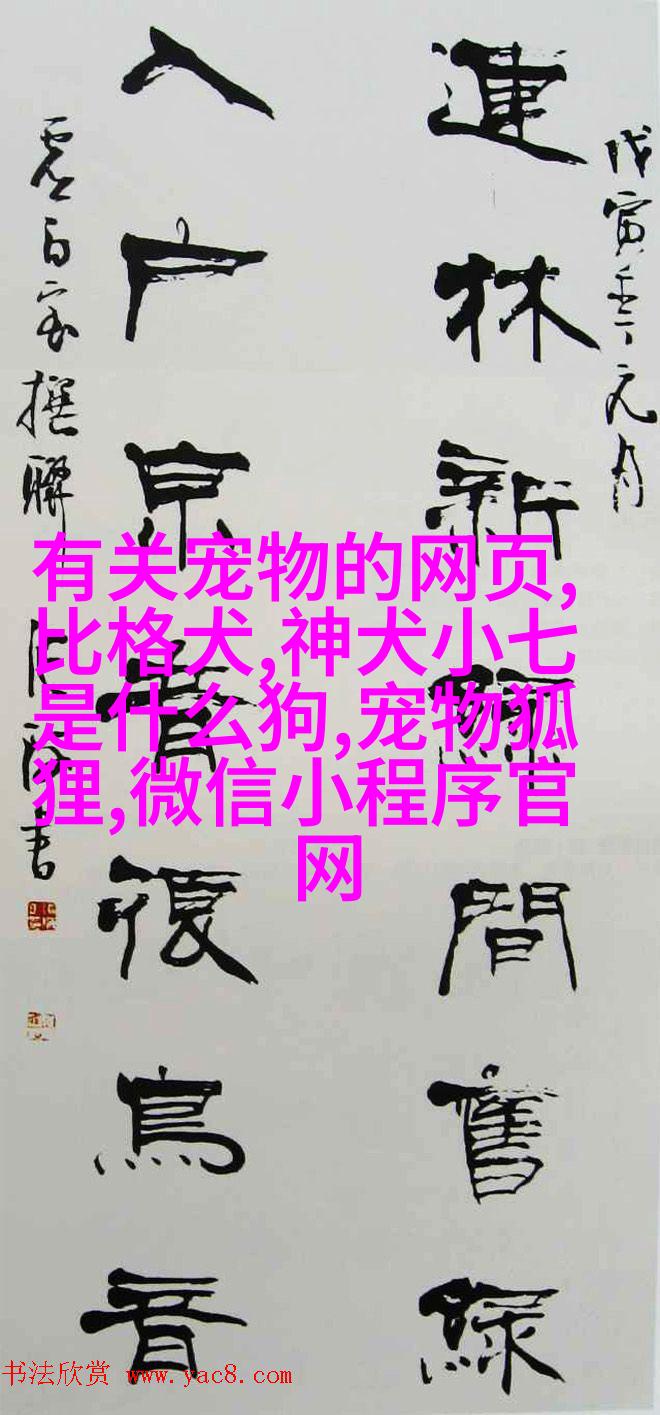 戊寅年元月
連林新綠間舊綠
入户音鳥音
撰聯書
有关宠物的网页,
比格犬,神犬小七
是什么狗,宠物狐
狸,微信小程序官
网
书法欣赏 www.yac8.com